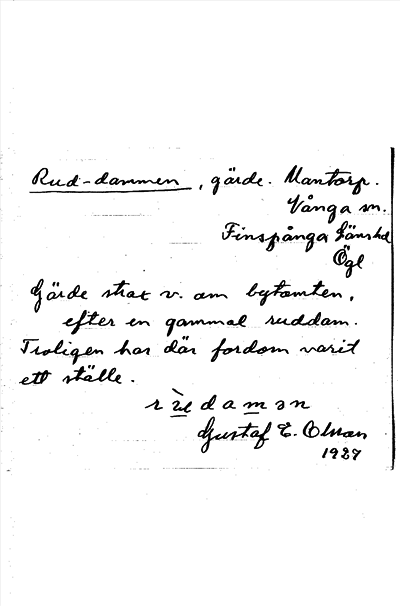 Rud-dammen, gärde. Mantorp.
Vånga sn.
Finspånga länshd
Ögl
Gärde strax v. om bytomten,
efter en gammal ruddam.
Troligen har där fordom varit
ett ställe.
rùdamən
Gustaf E. Olsson
1927